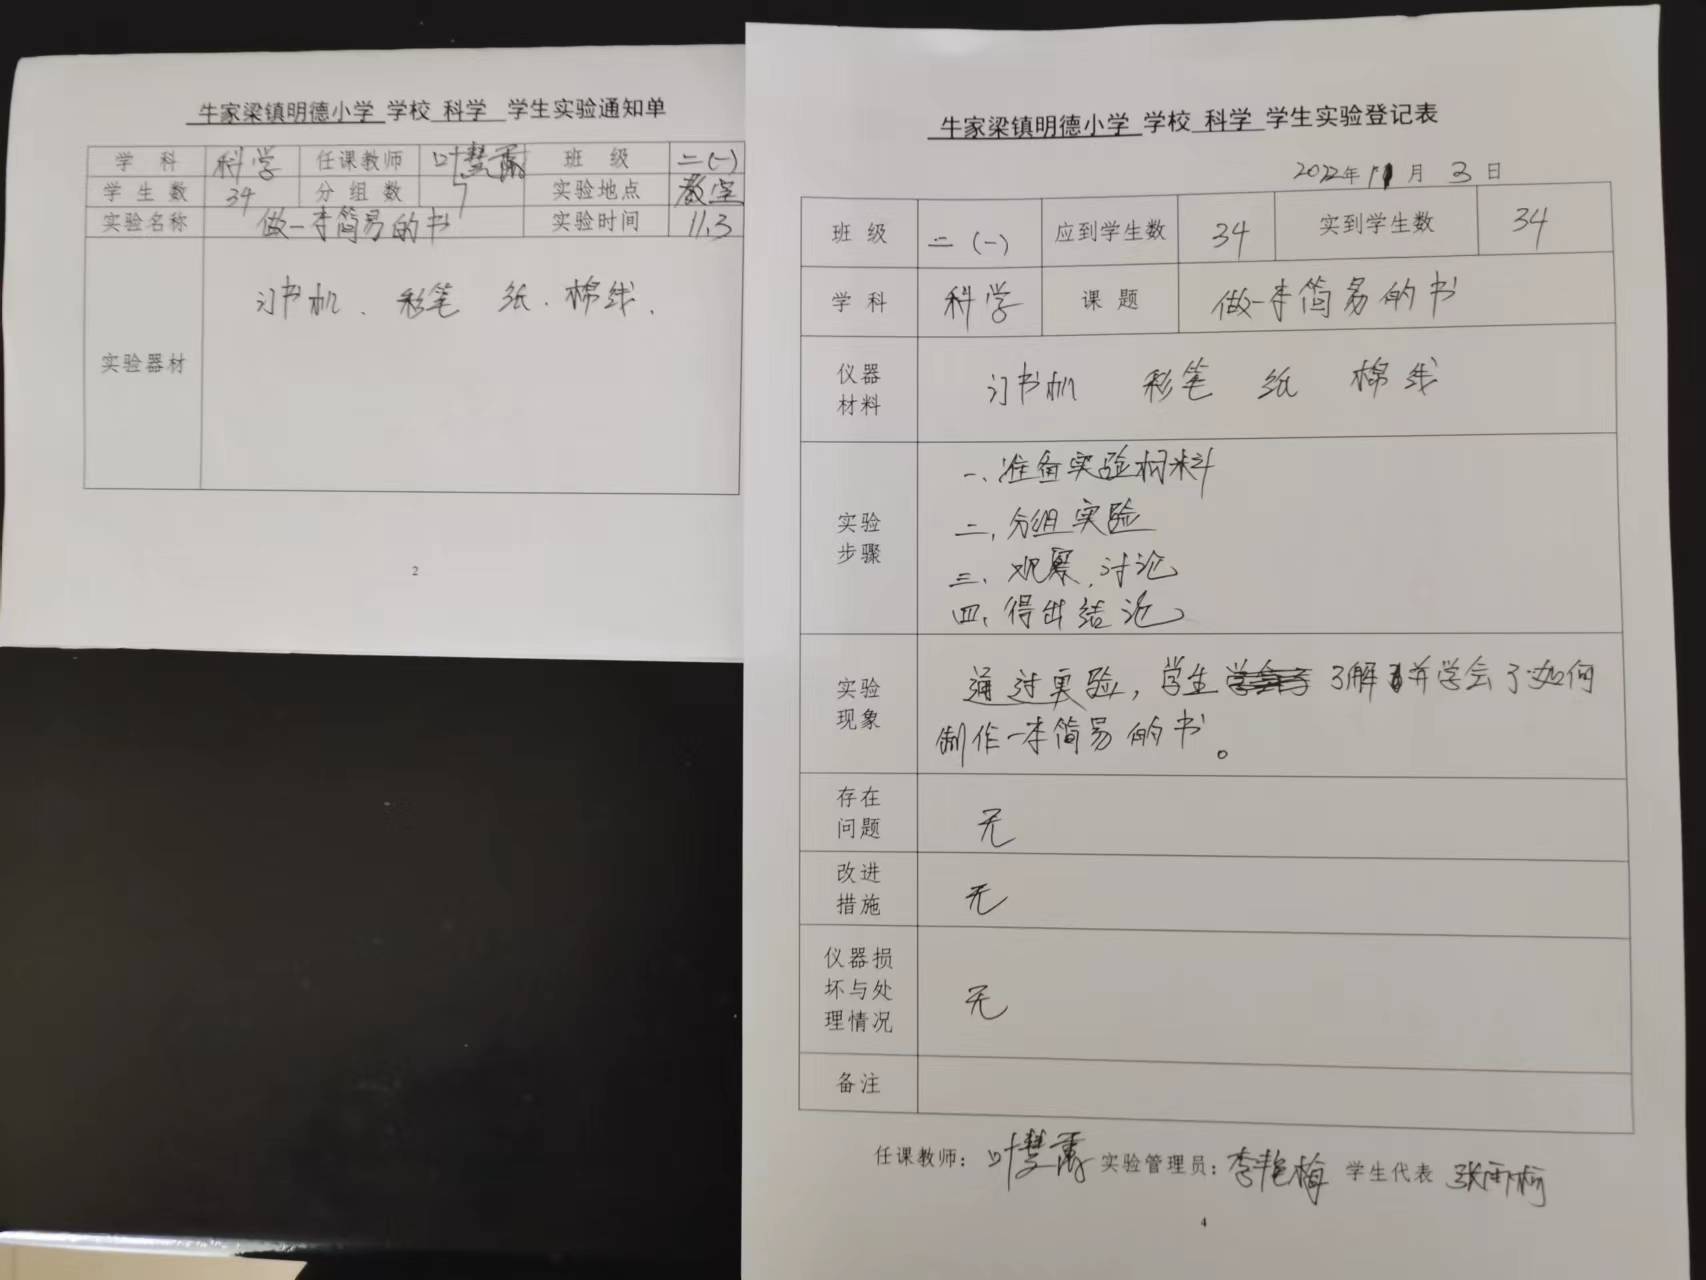 牛家梁镇明德小学 学校 科学 学生实验通知单
学 科 科学 任课教师 叶慧 班 级 二(一)
学 生 数 34 分 组 数 7 实验地点 教室
实验名称 做一本简易的书 实验时间 11.3
实验器材 订书机、彩笔 纸、棉线.
2
牛家梁镇明德小学 学校 科学 学生实验登记表
2022年 11 月 3 日
班 级 二(一) 应到学生数 34 实到学生数 34
学 科 科学 课 题 做一本简易的书
仪器
材料
订书机 彩笔 纸 棉线
实验
步骤
一、准备实验材料
二、分组实验
三、观察、讨论
四、得出结论
实验
现象
通过实验，学生了解并学会了如何
制作一本简易的书。
存在
问题
无
改进
措施
无
仪器损
坏与处
理情况
无
备注
任课教师：叶慧 实验管理员：李艳梅 学生代表 张雨
4